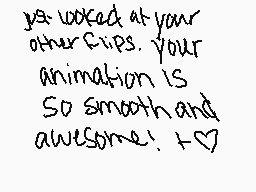 just looked at your
other flips. your
animation is
so smooth and
awesome! +♡